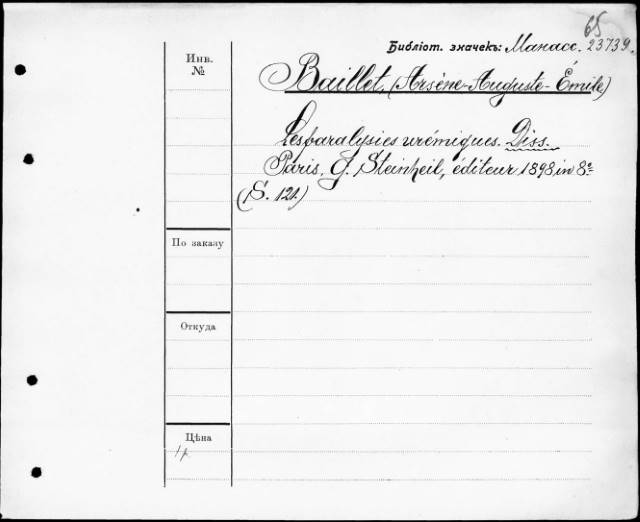 65
Библіот. значекъ: Манасс. 23739.
Инв. №
Baillet, (Arsène-Auguste-Émile)
Les paralysies urémiques. Diss.
Paris, G. Steinheil, éditeur 1898 in 8º
(S. 121.)
По заказу
Откуда
Цѣна
1 р